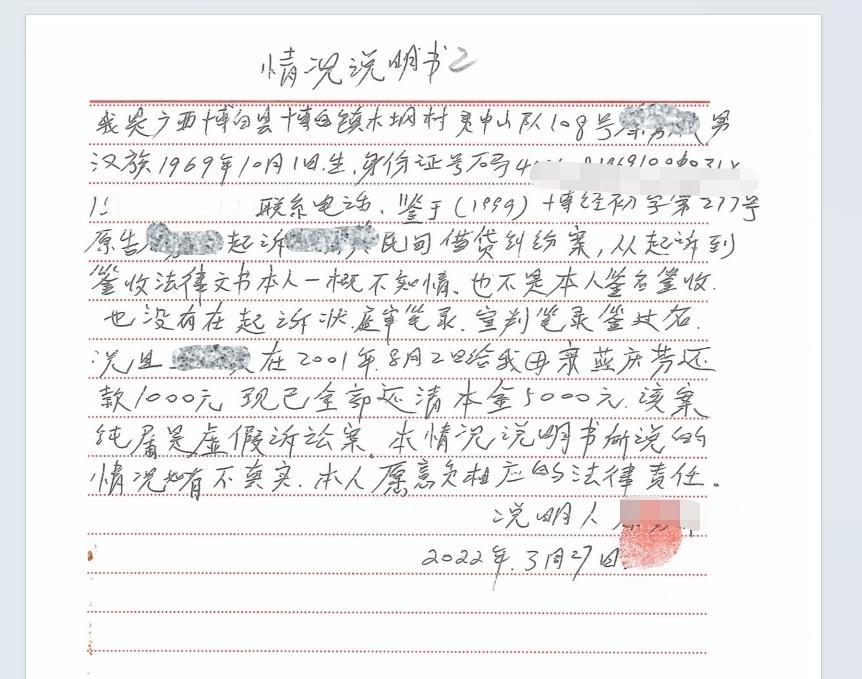 情况说明书2
我是广西博白县博白镇木坰村灵中山队108号 男
汉族1969年10月1日生,身份证号码4
联系电话、鉴于(1999)博经初字第277号
原告 起诉 民间借贷纠纷案,从起诉到
签收法律文书本人一概不知情、也不是本人签名签收.
也没有在起诉状.庭审笔录.宣判笔录签过名.
况且 在2001年.8月2日给我母亲蓝庆芳还
款1000元 现已全部还清本金5000元.该案
纯属是虚假诉讼案.本情况说明书所说的
情况如有不真实.本人愿意负相应的法律责任。
说明人
2022年.3月27日